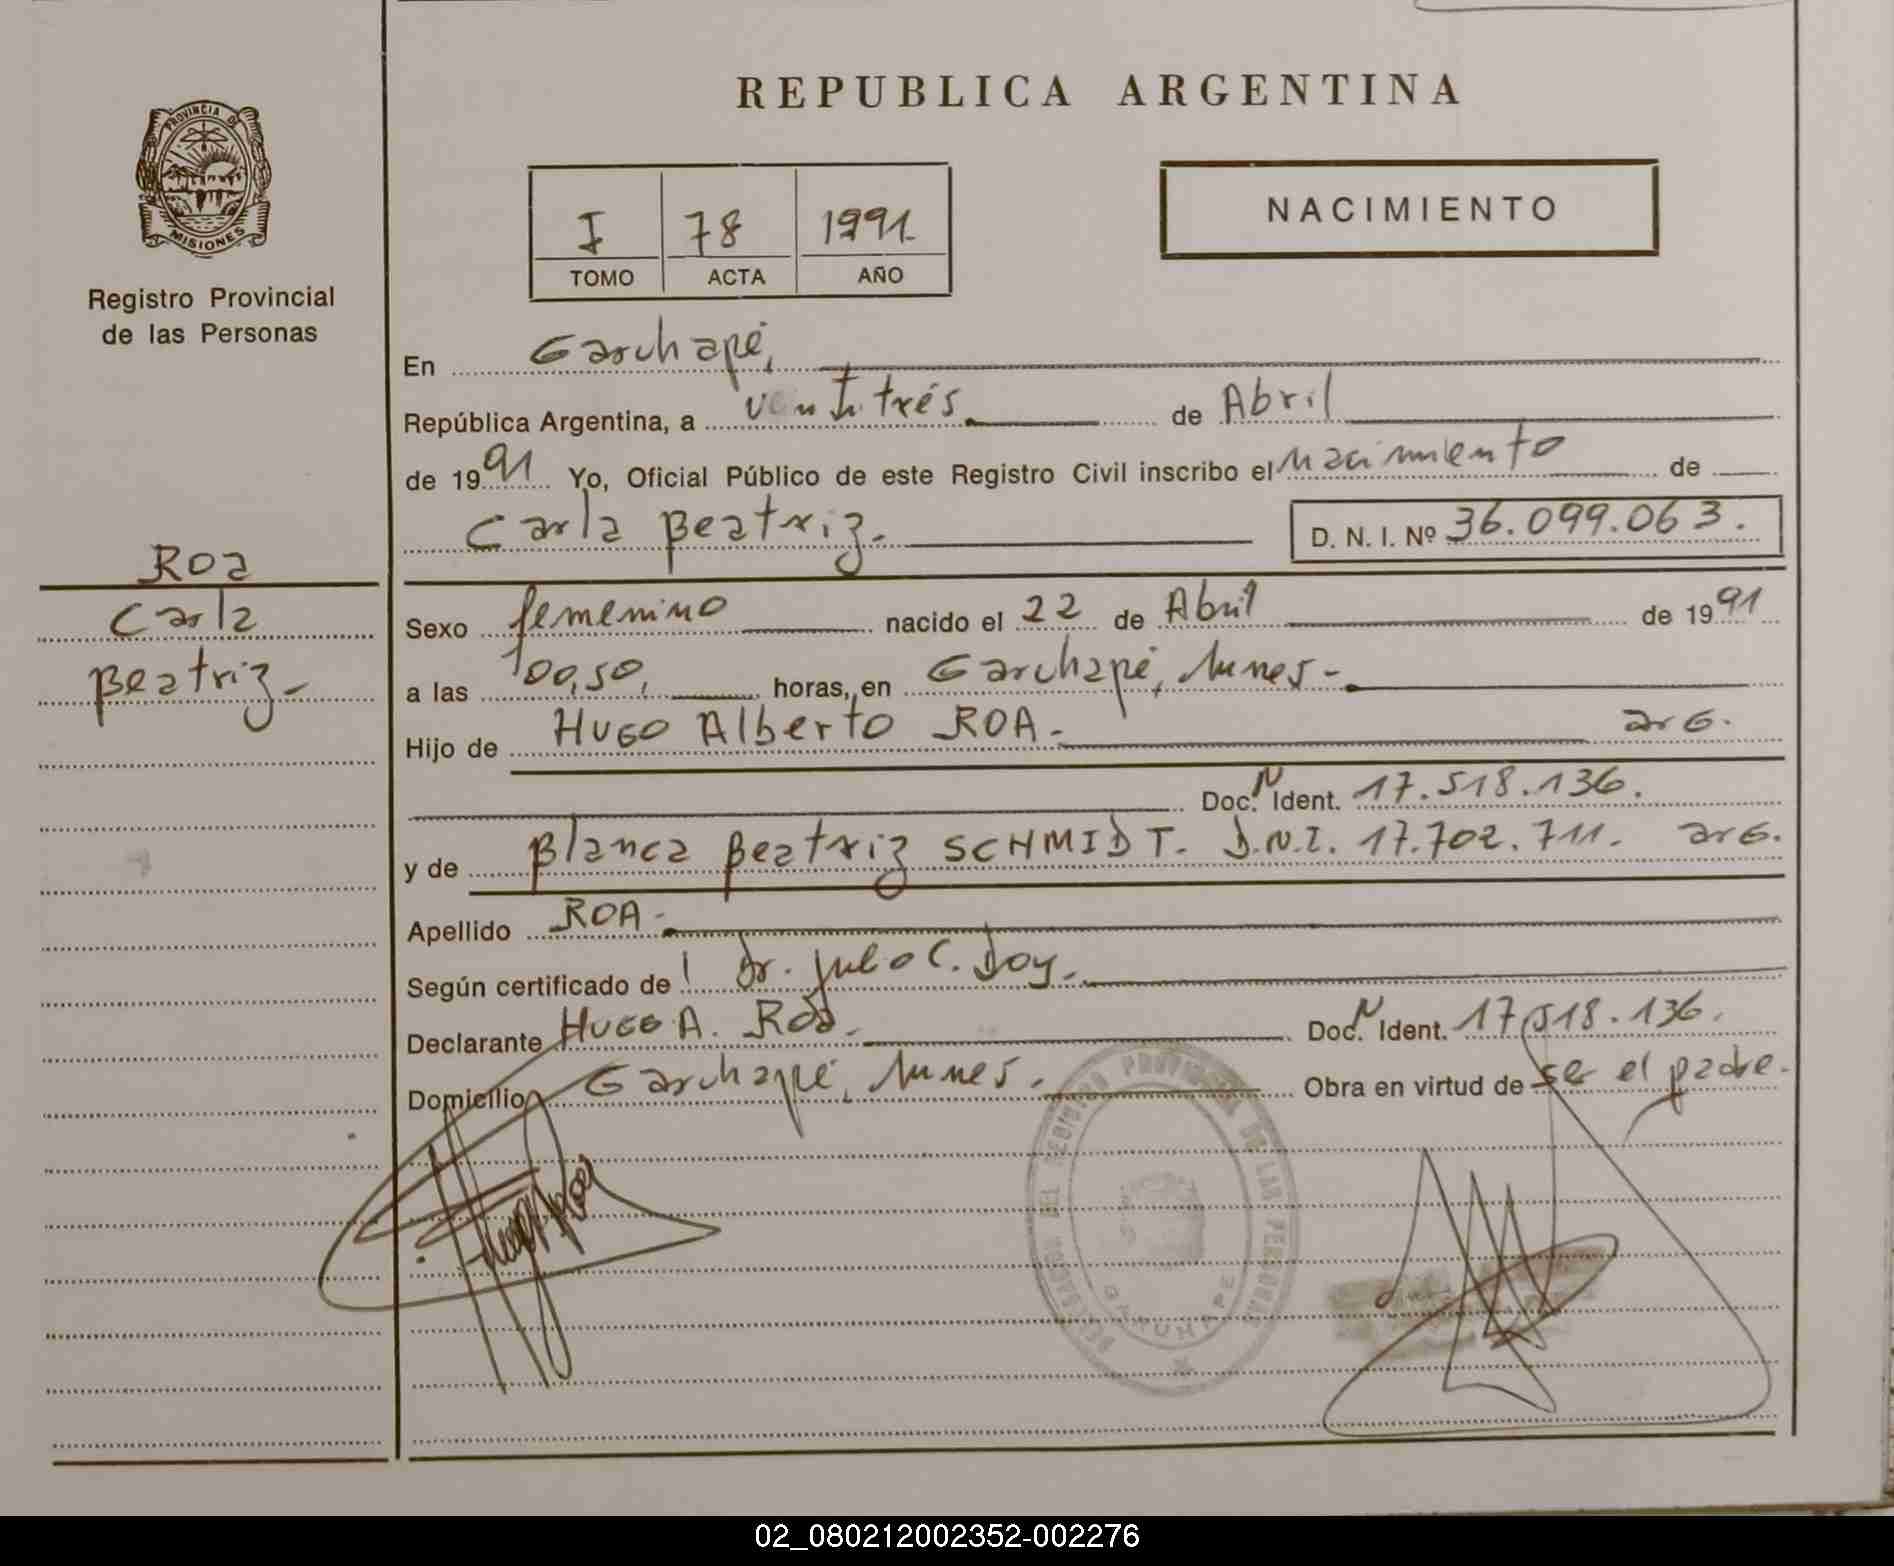 REPUBLICA ARGENTINA
PROVINCIA DE
MISIONES
Registro Provincial
de las Personas
I 78 1991.
TOMO ACTA AÑO
NACIMIENTO
En Garuhapé,
República Argentina, a veintitrés. de Abril
de 1991 Yo, Oficial Público de este Registro Civil inscribo el nacimiento de
Carla Beatriz. D. N. I. Nº 36.099.063.
Roa
Carla
Beatriz.-
Sexo femenino nacido el 22 de Abril de 1991
a las 00,50, horas, en Garuhapé, Mnes.-
Hijo de Hugo Alberto ROA.- arg.
Doc. N Ident. 17.518.136.
y de Blanca Beatriz SCHMIDT. D.N.I. 17.702.711. arg.
Apellido ROA.-
Según certificado de Dr. Julio C. Doy.
Declarante Hugo A. Roa. Doc. N Ident. 17.518.136.
Domicilio Garuhapé, Mnes. Obra en virtud de ser el padre.
DELEGACION DEL REGISTRO PROVINCIAL DE LAS PERSONAS
GARUHAPE
02_080212002352-002276